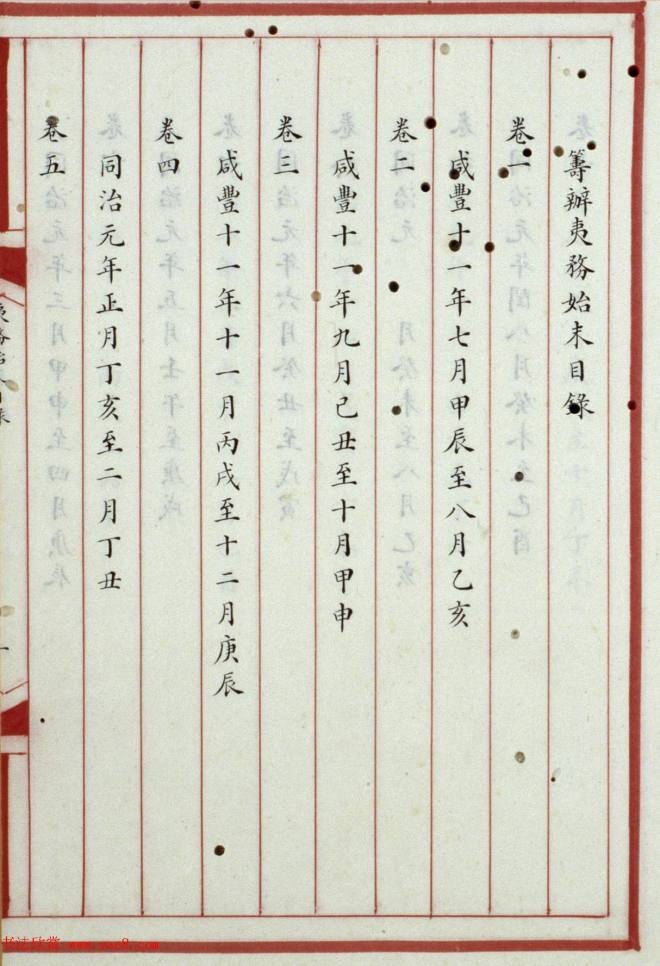 籌辦夷務始末目錄
卷一
咸豐十一年七月甲辰至八月乙亥
卷二
咸豐十一年九月己丑至十月甲申
卷三
咸豐十一年十一月丙戌至十二月庚辰
卷四
同治元年正月丁亥至二月丁丑
卷五
书法欣赏